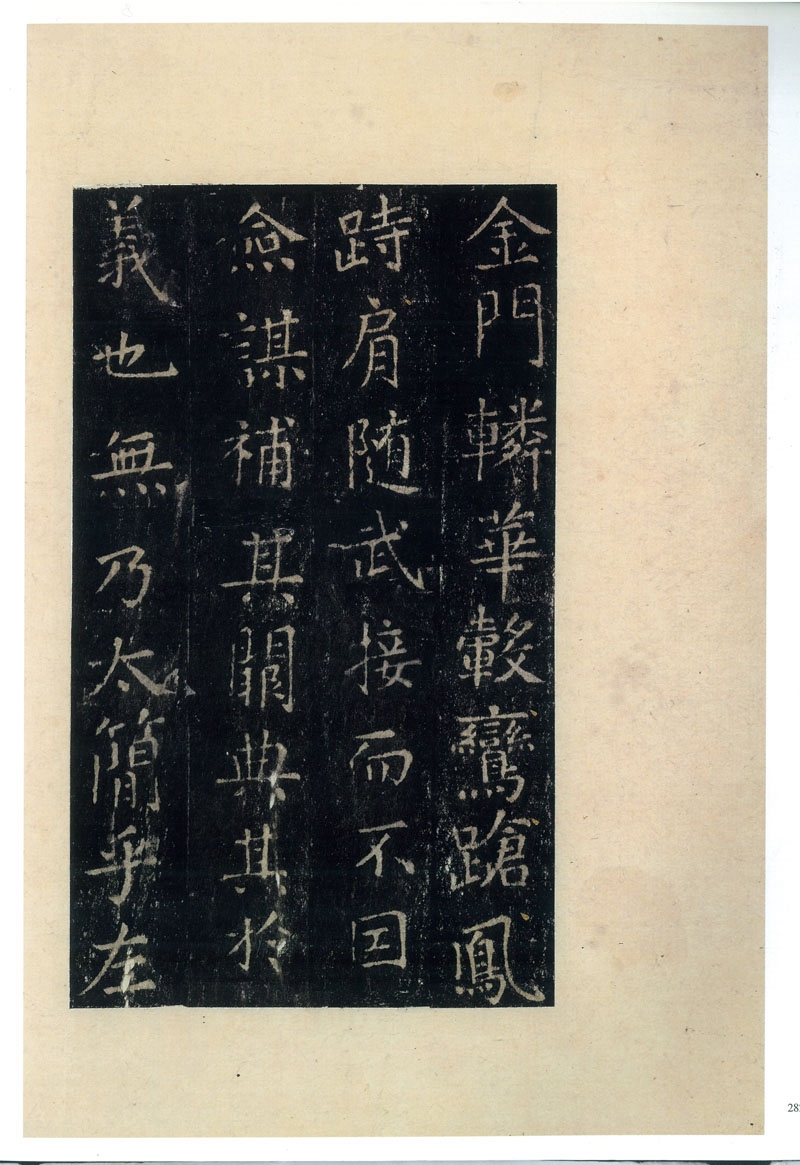 金門轔華轂鸞蹌鳳
跱肩隨武接而不因
僉謀補其闕典其於
義也無乃太簡乎左
28